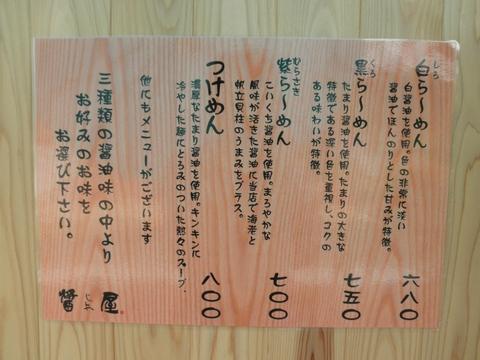 しろ
白ら〜めん
白醤油を使用。色の非常に淡い
醤油でほんのりとした甘みが特徴。
六八〇
くろ
黒ら〜めん
たまり醤油を使用。たまりの大きな
特徴である深い色を重視し、コクの
ある味わいが特徴。
七五〇
むらさき
紫ら〜めん
こいくち醤油を使用。まろやかな
風味が活きた醤油に当店で海老と
帆立貝柱のうまみをプラス。
七〇〇
つけめん
濃厚なたまり醤油を使用。キンキンに
冷やした麺にとろみのついた熱々のスープ.
八〇〇
他にもメニューがございます
三種類の醤油味の中より
お好みのお味を
お選び下さい。
醤じゃ屋